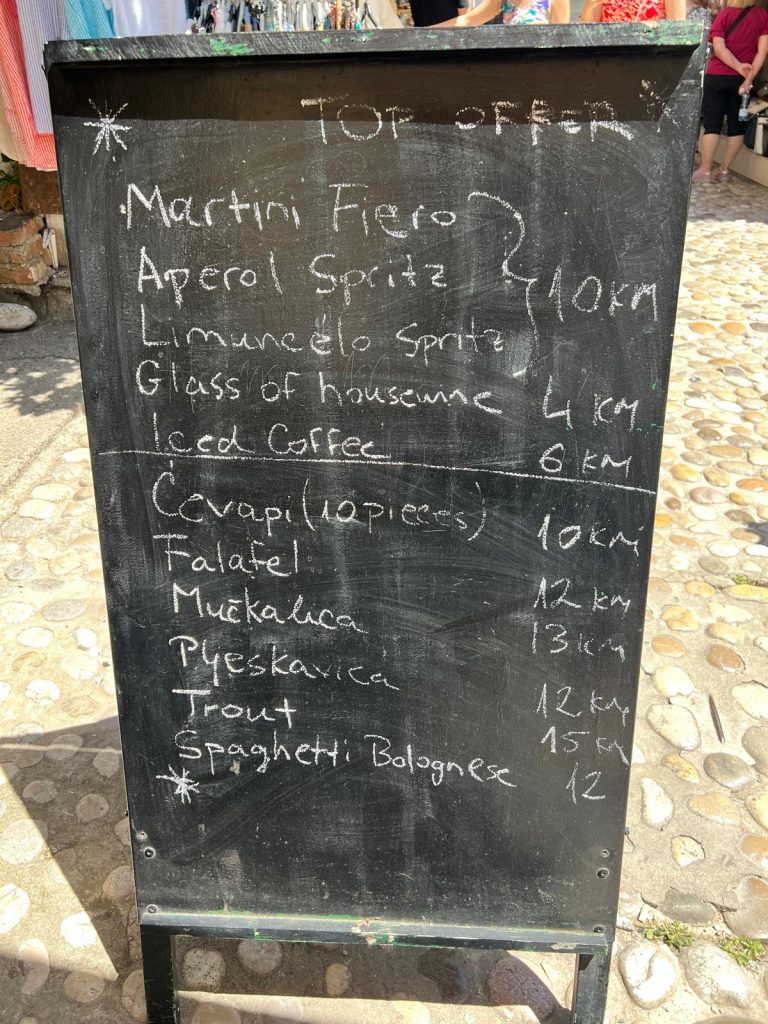 TOP OFFER
Martini Fiero
Aperol Spritz 10 KM
Limuncelo Spritz
Glass of housewine 4 KM
Iced Coffee 6 KM
Ćevapi (10 pieces) 10 KM
Falafel 12 KM
Mućkalica 13 KM
Pljeskavica 12 KM
Trout 15 KM
Spaghetti Bolognese 12